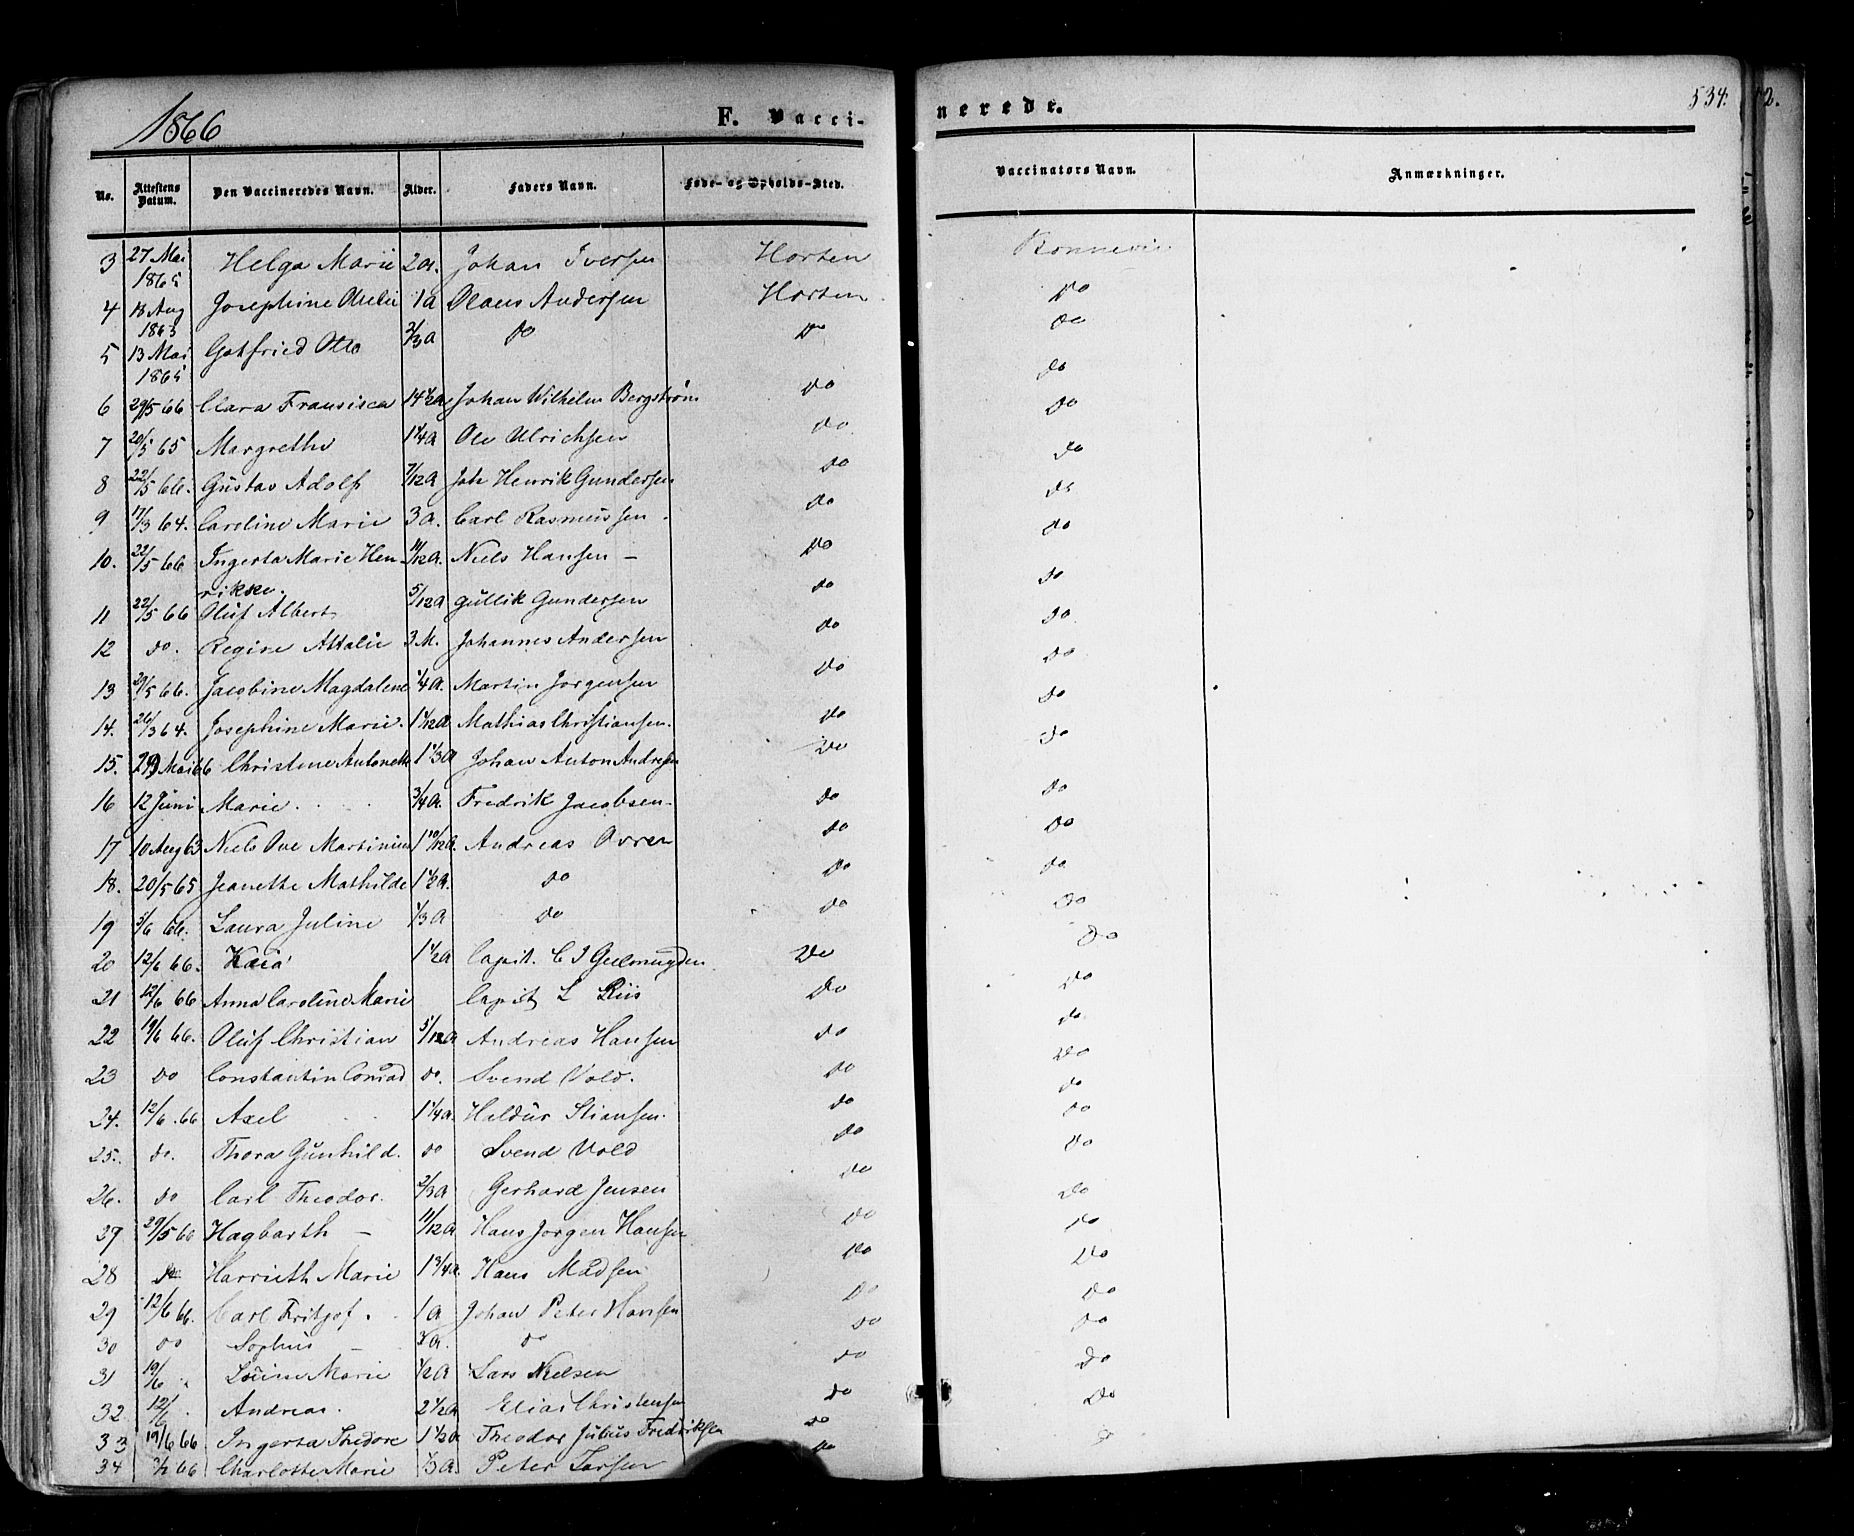 1866 F. Vacci- nerede. 534.
No. Attestens Datum. Den Vaccineredes Navn. Alder. Faders Navn. Føde- og Opholds-Sted. Vaccinators Navn. Anmærkninger.
3 27 Mai 1865 Helga Marie 2 a. Johan Iversen Horten
4 Aug Josephine 1 a Olaus Andersen Horten Do
5 13 Mai 1865 Gotfried Otto 2/3 a Do Do Do
6 29/5 66 Clara Fransisca 14 1/2 a Johan Wilhelm Bergstrøm Do Do
7 20/5 65 Margrethe 1 1/4 a Ole Ulrichsen Do Do
8 22/5 66. Gustav Adolf 7/12 a Joh Henrik Gundersen Do Do
9 17/3 64. Caroline Marie 3 a. Carl Rasmussen. Do Do
10. 22/5 66 Ingerta Marie Hen- 11/12 a. Niels Hansen – Do Do
rikke.
11 22/5 66 Oluf Albert 5/12 a Gullik Gundersen Do Do
12 Do. Regine Attalie 3 M. Johannes Andersen Do Do
13 29/5 66. Jacobine Magdalene 1/4 a. Martin Jørgensen Do Do
14. 26/3 64. Josephine Marie. 1 1/12 a Mathias Christiansen. Do Do
15. 29 Mai 66 Christene Antonette 1 1/3 a Johan Anton Andresen Do Do
16 12 Juni Marie. 3/4 a. Fredrik Jacobsen. Do Do
17 10 Aug 63 Niels Ove Martinius 1 10/12 a. Andreas Do Do
18. 20/5 65 Jeanette Mathilde 1 1/2 a. Do Do Do
19 5/6 66. Laura Juline 1/3 a Do Do Do
20 12/6 66. Kaia 1 1/2 a Capit. C J Do Do
21 12/6 66 Anna Caroline Marie Capit L Riis Do Do
22 19/6 66. Oluf Christian 5/12 a Andreas Hansen Do Do
23 Do Constantin Conrad Do. Svend Vold. Do Do
24. 12/6 66 Axel 1 1/4 a. Haldur Stiansen. Do Do
25. Do. Thora Gunhild. Do Svend Vold Do Do
26. Do Carl Theodor. 2/3 a Gerhard Jensen Do Do
27 29/5 66 Hagbarth – 11/12 a Hans Jørgen Hansen Do Do
28 Do Harrieth Marie 1 3/4 a. Hans Madsen Do Do
29 12/6 66. Carl Fritjof. 1 a Johan Peter Hansen Do Do
30 Do Sophus – a. Do Do Do
31 19/6 Marie 1/2 a Lars Nielsen Do Do
32 12/6. Andreas. 2 1/2 a Elias Christensen Do Do
33 19/6 66 Ingerta Thedore 1 1/2 a Theodor Julius Fredriksen Do
34 66 Charlotte Marie 1/3 a. Peter Do